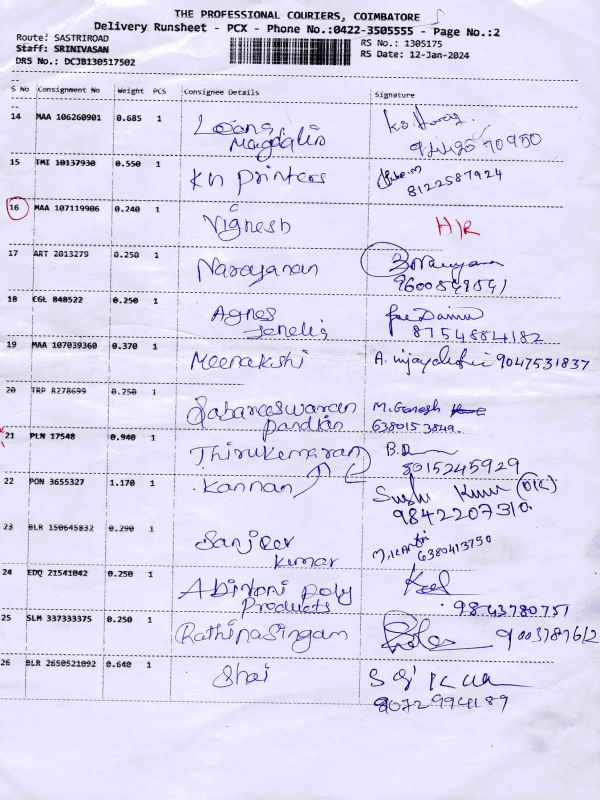 THE PROFESSIONAL COURIERS, COIMBATORE
Delivery Runsheet - PCX - Phone No.:0422-3505555 - Page No.:2
Route: SASTRIROAD
RS No.: 1305175
Staff: SRINIVASAN
RS Date: 12-Jan-2024
DRS No.: DCJB130517502
S No Consignment No Weight PCS Consignee Details Signature
14 MAA 106260901 0.685 1
Magdalin
15 TMI 10137930 0.550 1 KN Printers
8122587924
16 MAA 107119906 0.240 1 Vignesh H/R
17 ART 2013279 0.250 1 Narayanan
18 CGL 848522 0.250 1 Agnes
Jenelis 8754884182
19 MAA 107039360 0.370 1 Meenakshi 9047531837
20 TRP 8278699 0.250 1 Sabareeswaran M. Ganesh
pandian 6380153849.
21 PLN 17548 0.940 1 Thirukumaran
8015245929
22 PON 3655327 1.170 1 Kannan
9842207310
23 BLR 150645832 0.290 1 Sanjeev
kumar 6380413750
24 EDQ 21541042 0.250 1 Abirami poly
Products 9843780751
25 SLM 337333375 0.250 1 RathinaSingam
26 BLR 2650521092 0.640 1 Shai
9072994189